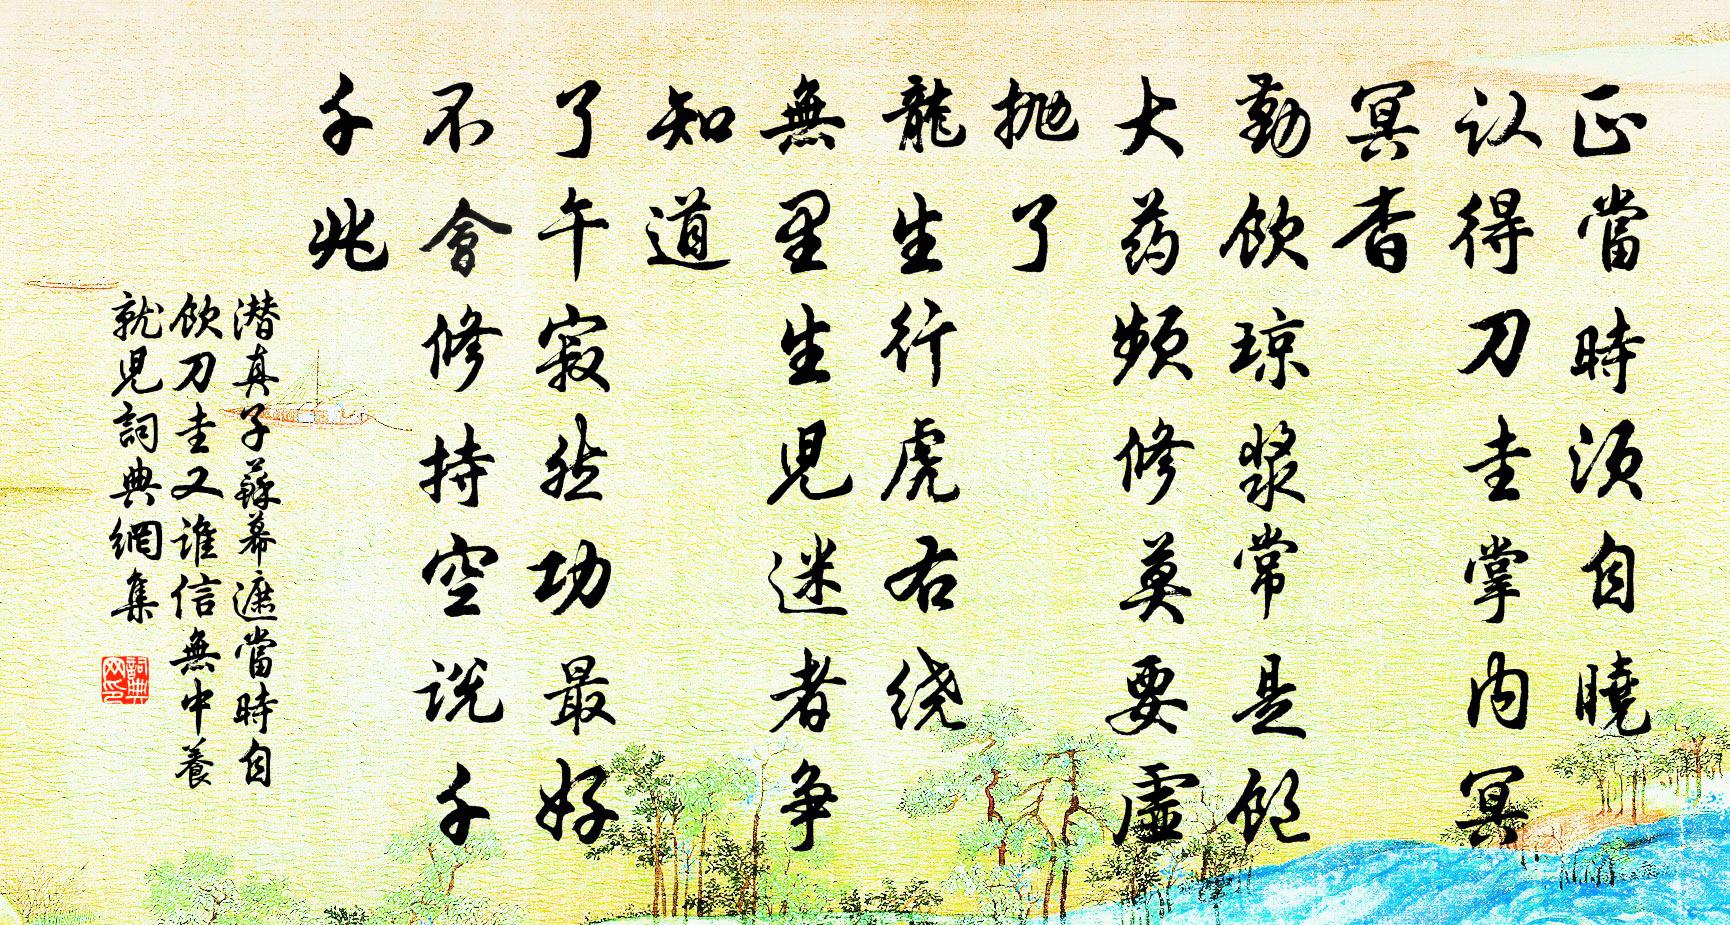 正當時須自曉
认得刀圭掌内冥
冥杳
勤飲琼漿常是飽
大药頻修莫要虛
抛了
龍生行虎右绕
無里生児迷者争
知道
了午寂然功最好
不會修持空说千
千兆
潜真子蘇幕遮當時自
飲刀圭又誰信無中養
就児詞典網集
詞典网印